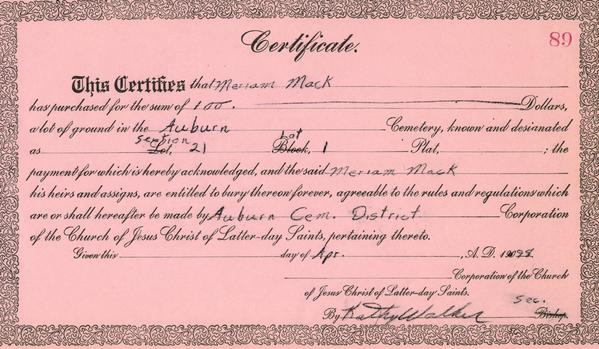 Certificate.
89
This Certifies that Meriam Mack
has purchased for the sum of 100. Dollars,
a lot of ground in the Auburn Cemetery, known and desianated
as Lot, Section 21 Block, Lot 1 Plat, ; the
payment for which is hereby acknowledged, and the said Meriam Mack
his heirs and assigns, are entitled to bury thereon forever, agreeable to the rules and regulations which
are or shall hereafter be made by Auburn Cem. District Corporation
of the Church of Jesus Christ of Latter-day Saints, pertaining thereto.
Given this day of Apr. , A.D.
Corporation of the Church
of Jesus Christ of Latter-day Saints.
By Kathy Walker Sec. Bishop.